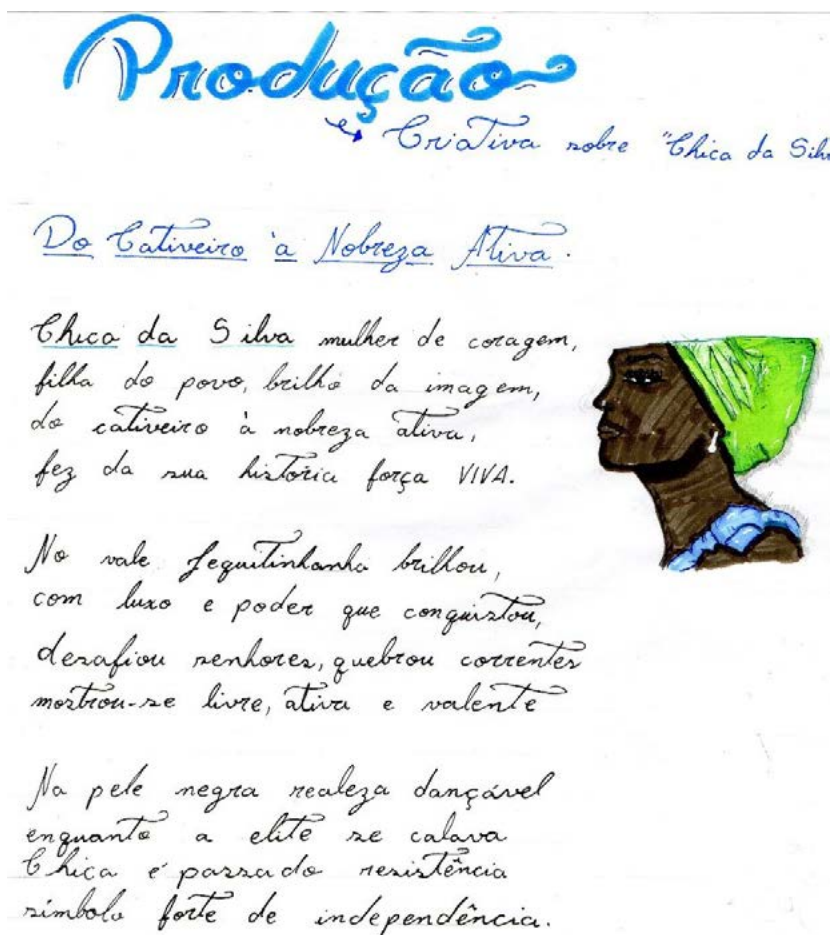 Produção
Criativa sobre "Chica da Silv
Do Cativeiro à Nobreza Ativa.
Chica da Silva mulher de coragem,
filha do povo, brilho da imagem,
do cativeiro à nobreza ativa,
fez da sua história força VIVA.
No vale Jequitinhanha brilhou,
com luxo e poder que conquistou,
desafiou senhores, quebrou correntes
mostrou-se livre, ativa e valente
Na pele negra realeza dançável
enquanto a elite se calava
Chica é passado resistência
símbolo forte de independência.